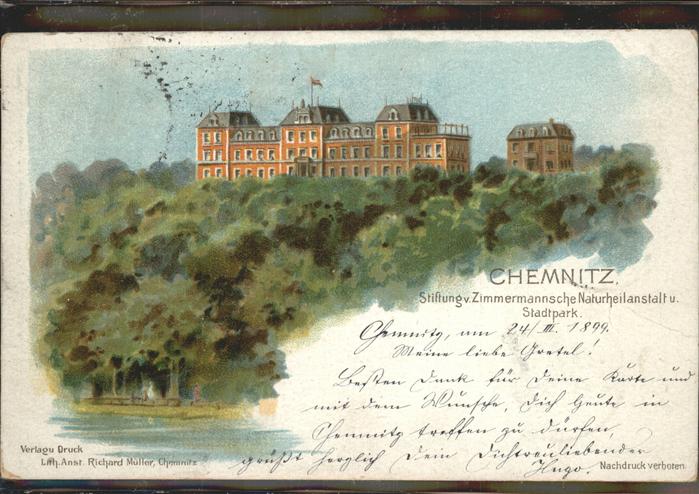 CHEMNITZ.
Stiftung v. Zimmermannsche Naturheilanstalt u.
Stadtpark.
Chemnitz, am 24/III. 1899.
Meine liebe Gretel!
Besten Dank für Deine Karte und
mit dem Wunsche, Dich heute in
Chemnitz treffen zu dürfen,
grüßt herzlich Dein Dichtreuliebender
Hugo.
Verlag u Druck
Lith. Anst. Richard Müller, Chemnitz
Nachdruck verboten.